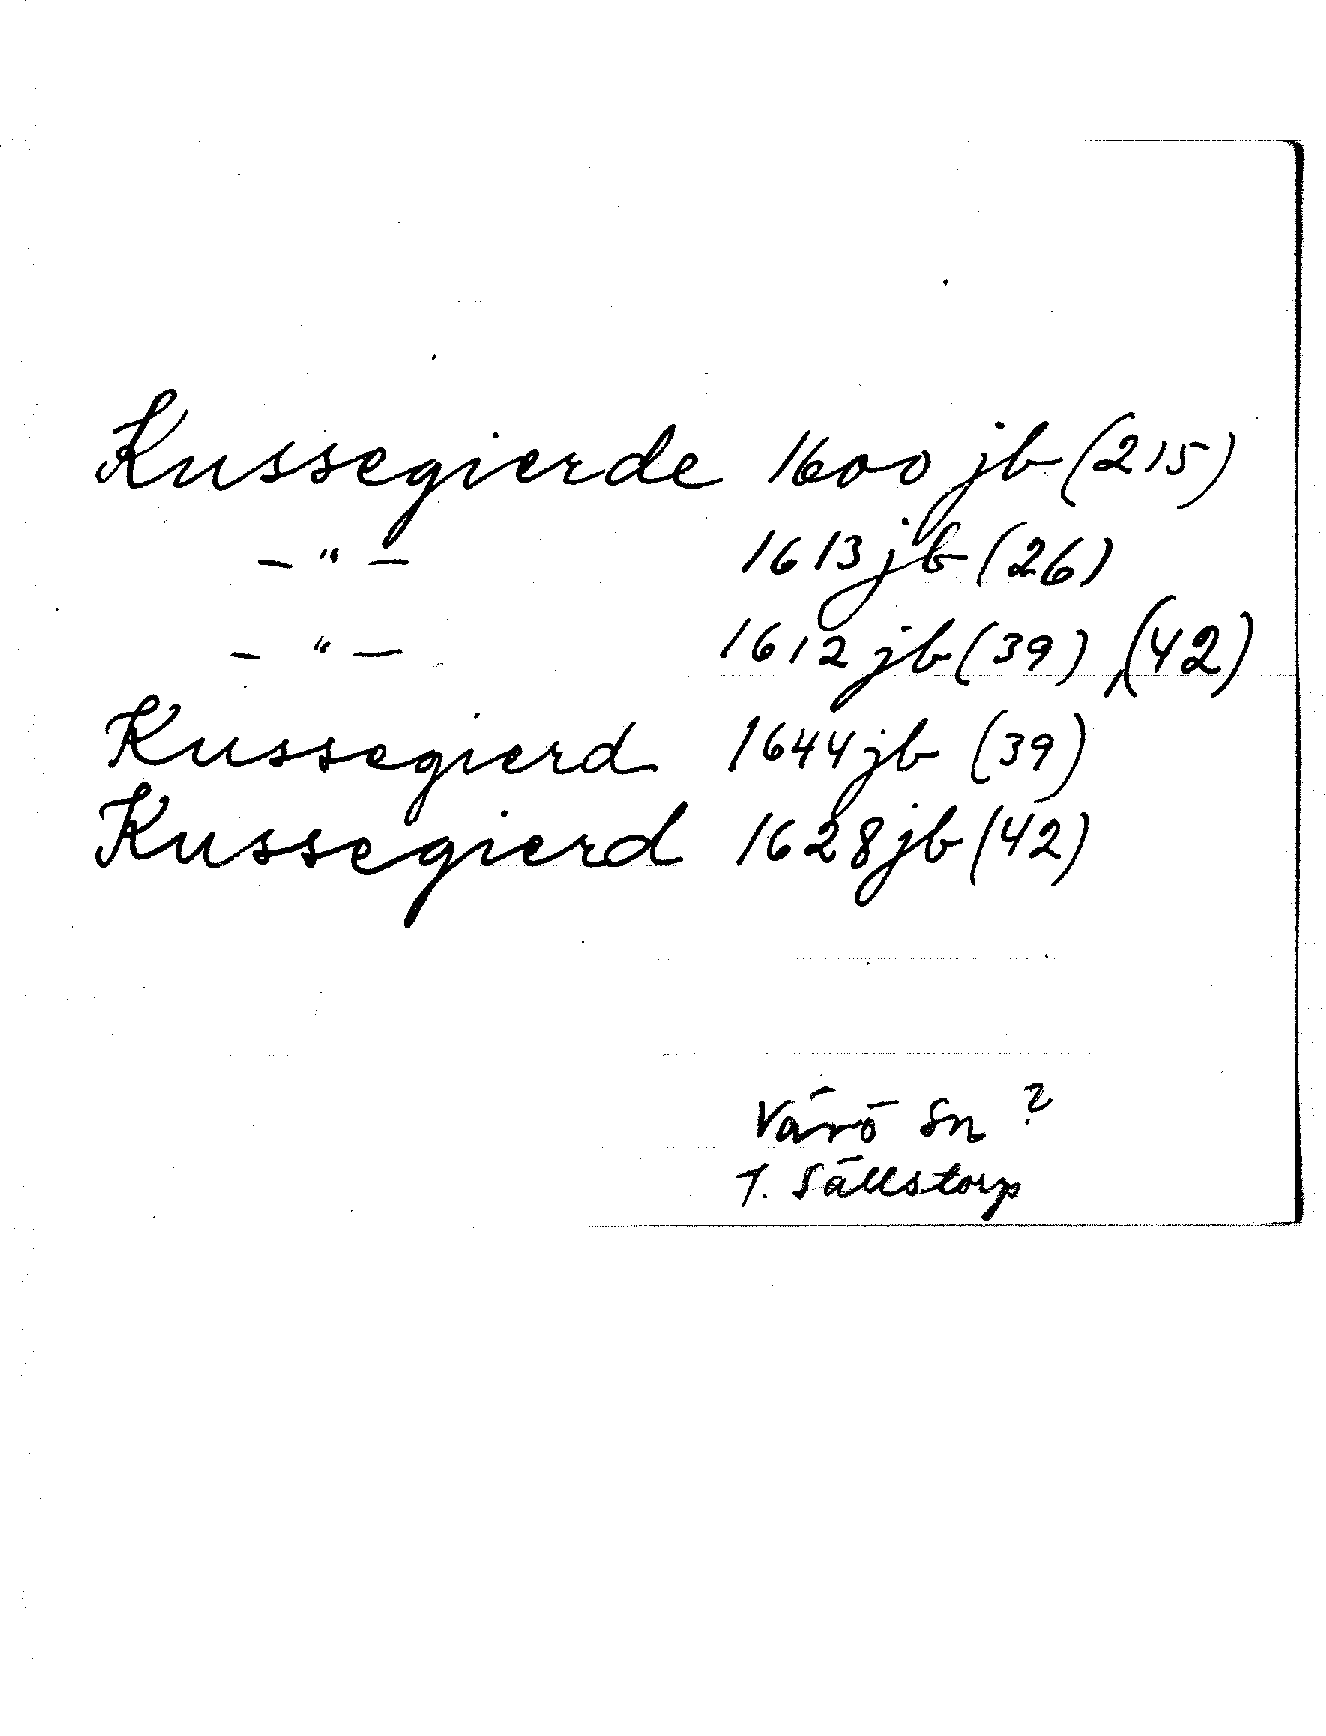 Kussegierde 1600 jb (215)
– " – 1613 jb (26)
– " – 1612 jb (39), (42)
Kussegierd 1644 jb (39)
Kussegierd 1628 jb (42)
Värö Sn ?
T. Sällstorp